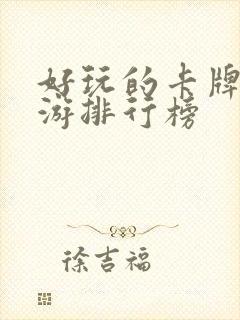 好玩的卡牌
游排行榜
徐吉福